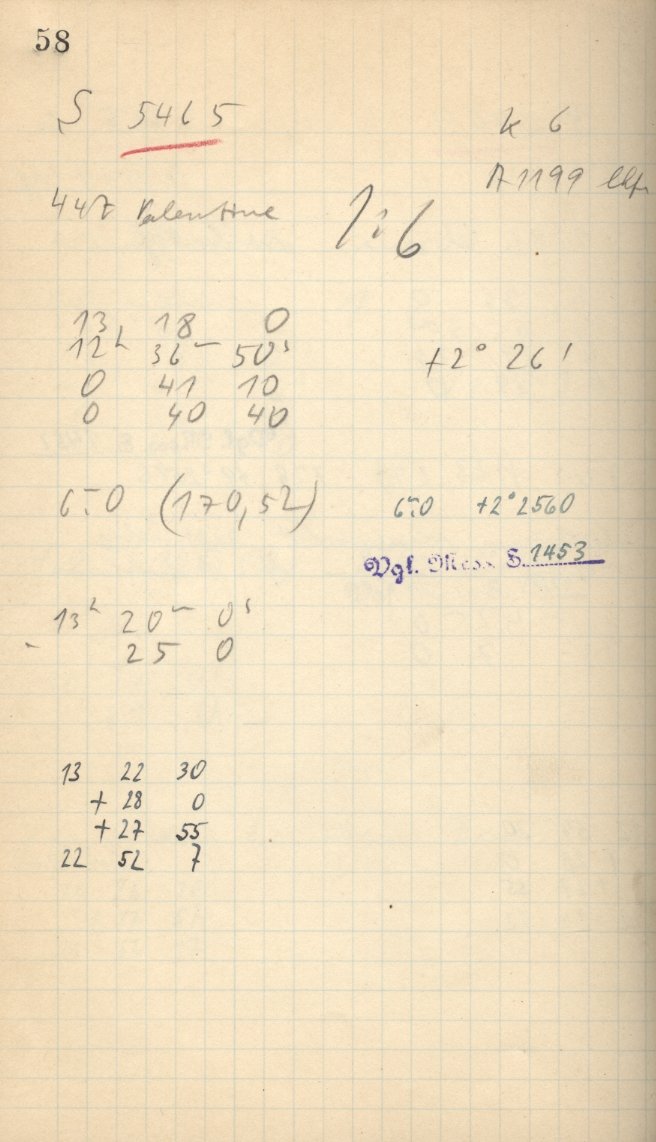 58
S 5465
k 6
A 1199
447 Valentine 1:6
13 18 0
12h 36m 50s +2° 26'
0 41 10
0 40 40
6m0 (170,52) 6m0 +2° 2560
Vgl. Mess. S. 1453
13h 20m 0s
- 25 0
13 22 30
+ 28 0
+ 27 55
22 52 7